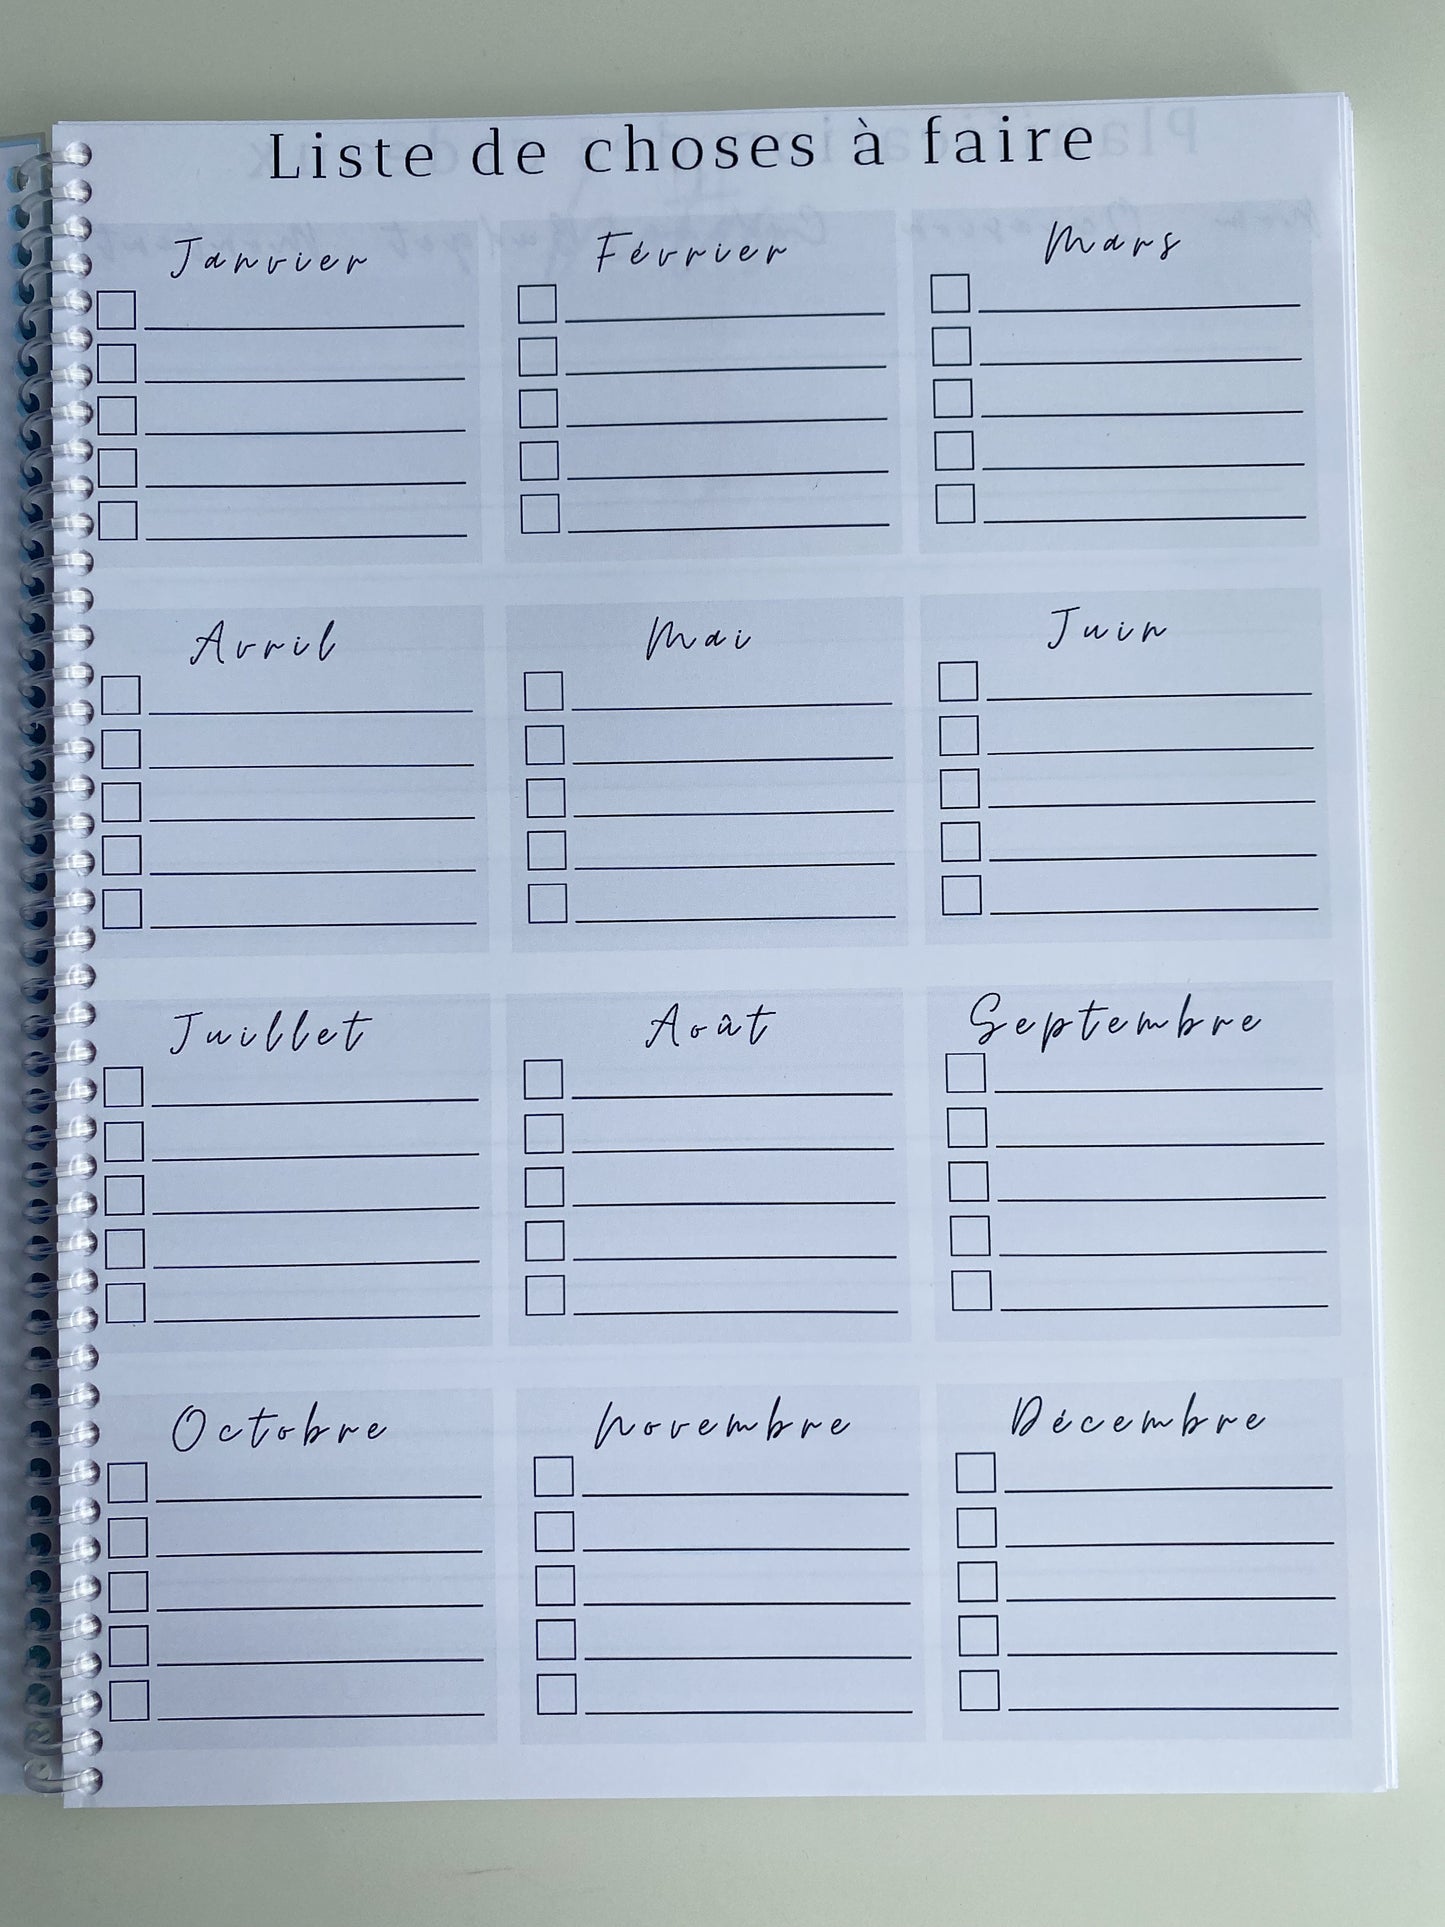 Liste de choses à faire
Janvier Février Mars
Avril Mai Juin
Juillet Août Septembre
Octobre Novembre Décembre